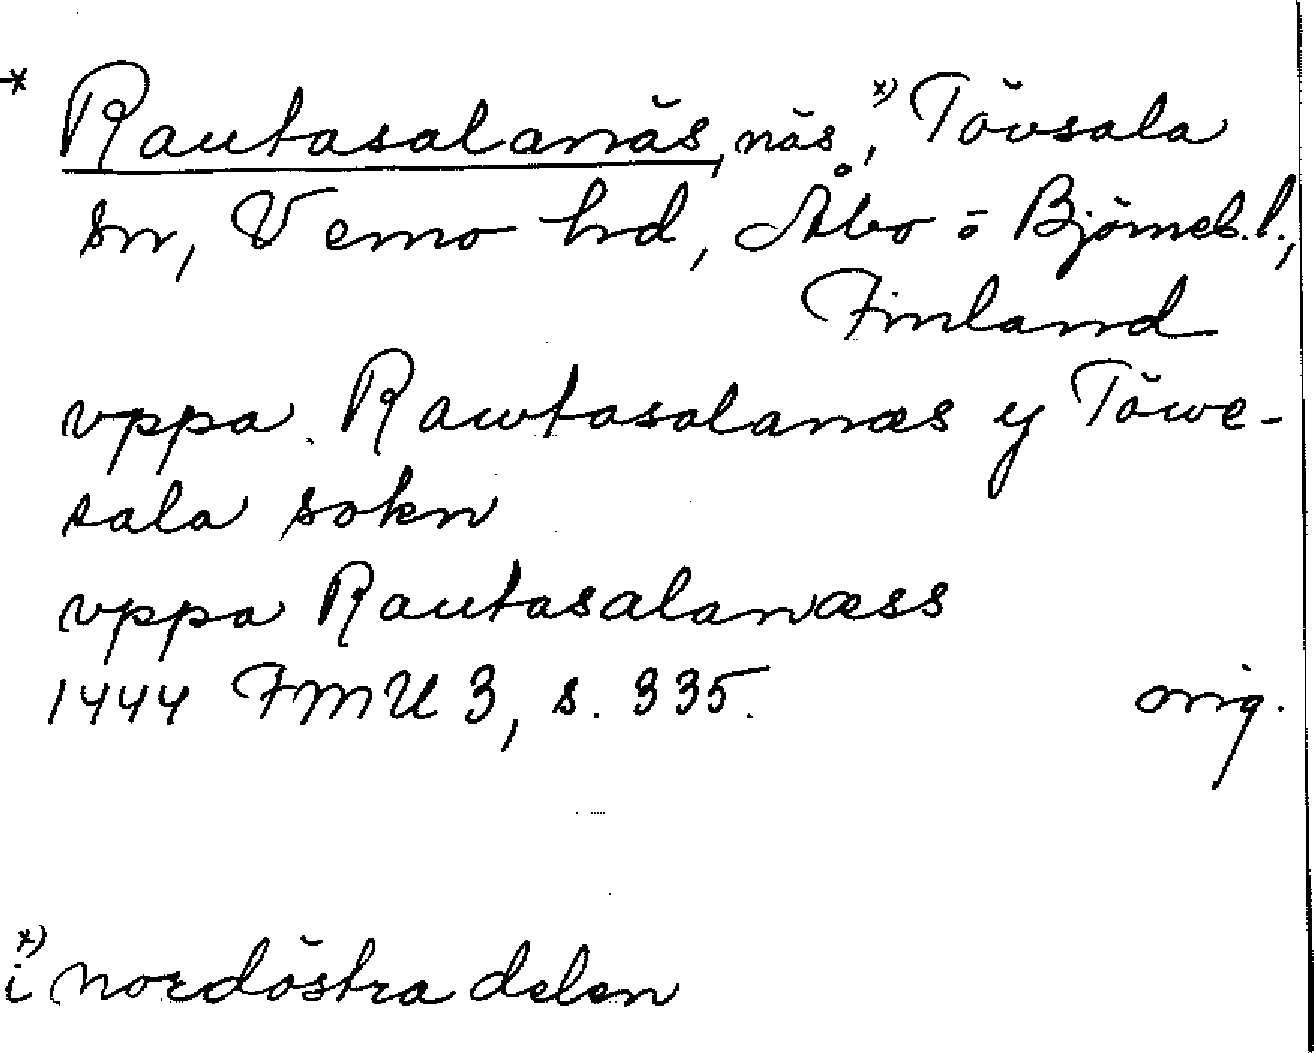 * Rautasalanäs, näs, *) Tövsala
sn, Vemo hd, Åbo o Björneb. l.,
Finland
vppa Rawtasalanæs y Töwe-
sala sokn
vppa Rautasalanæss
1444 FMU 3, s. 335. orig.
*) i nordöstra delen